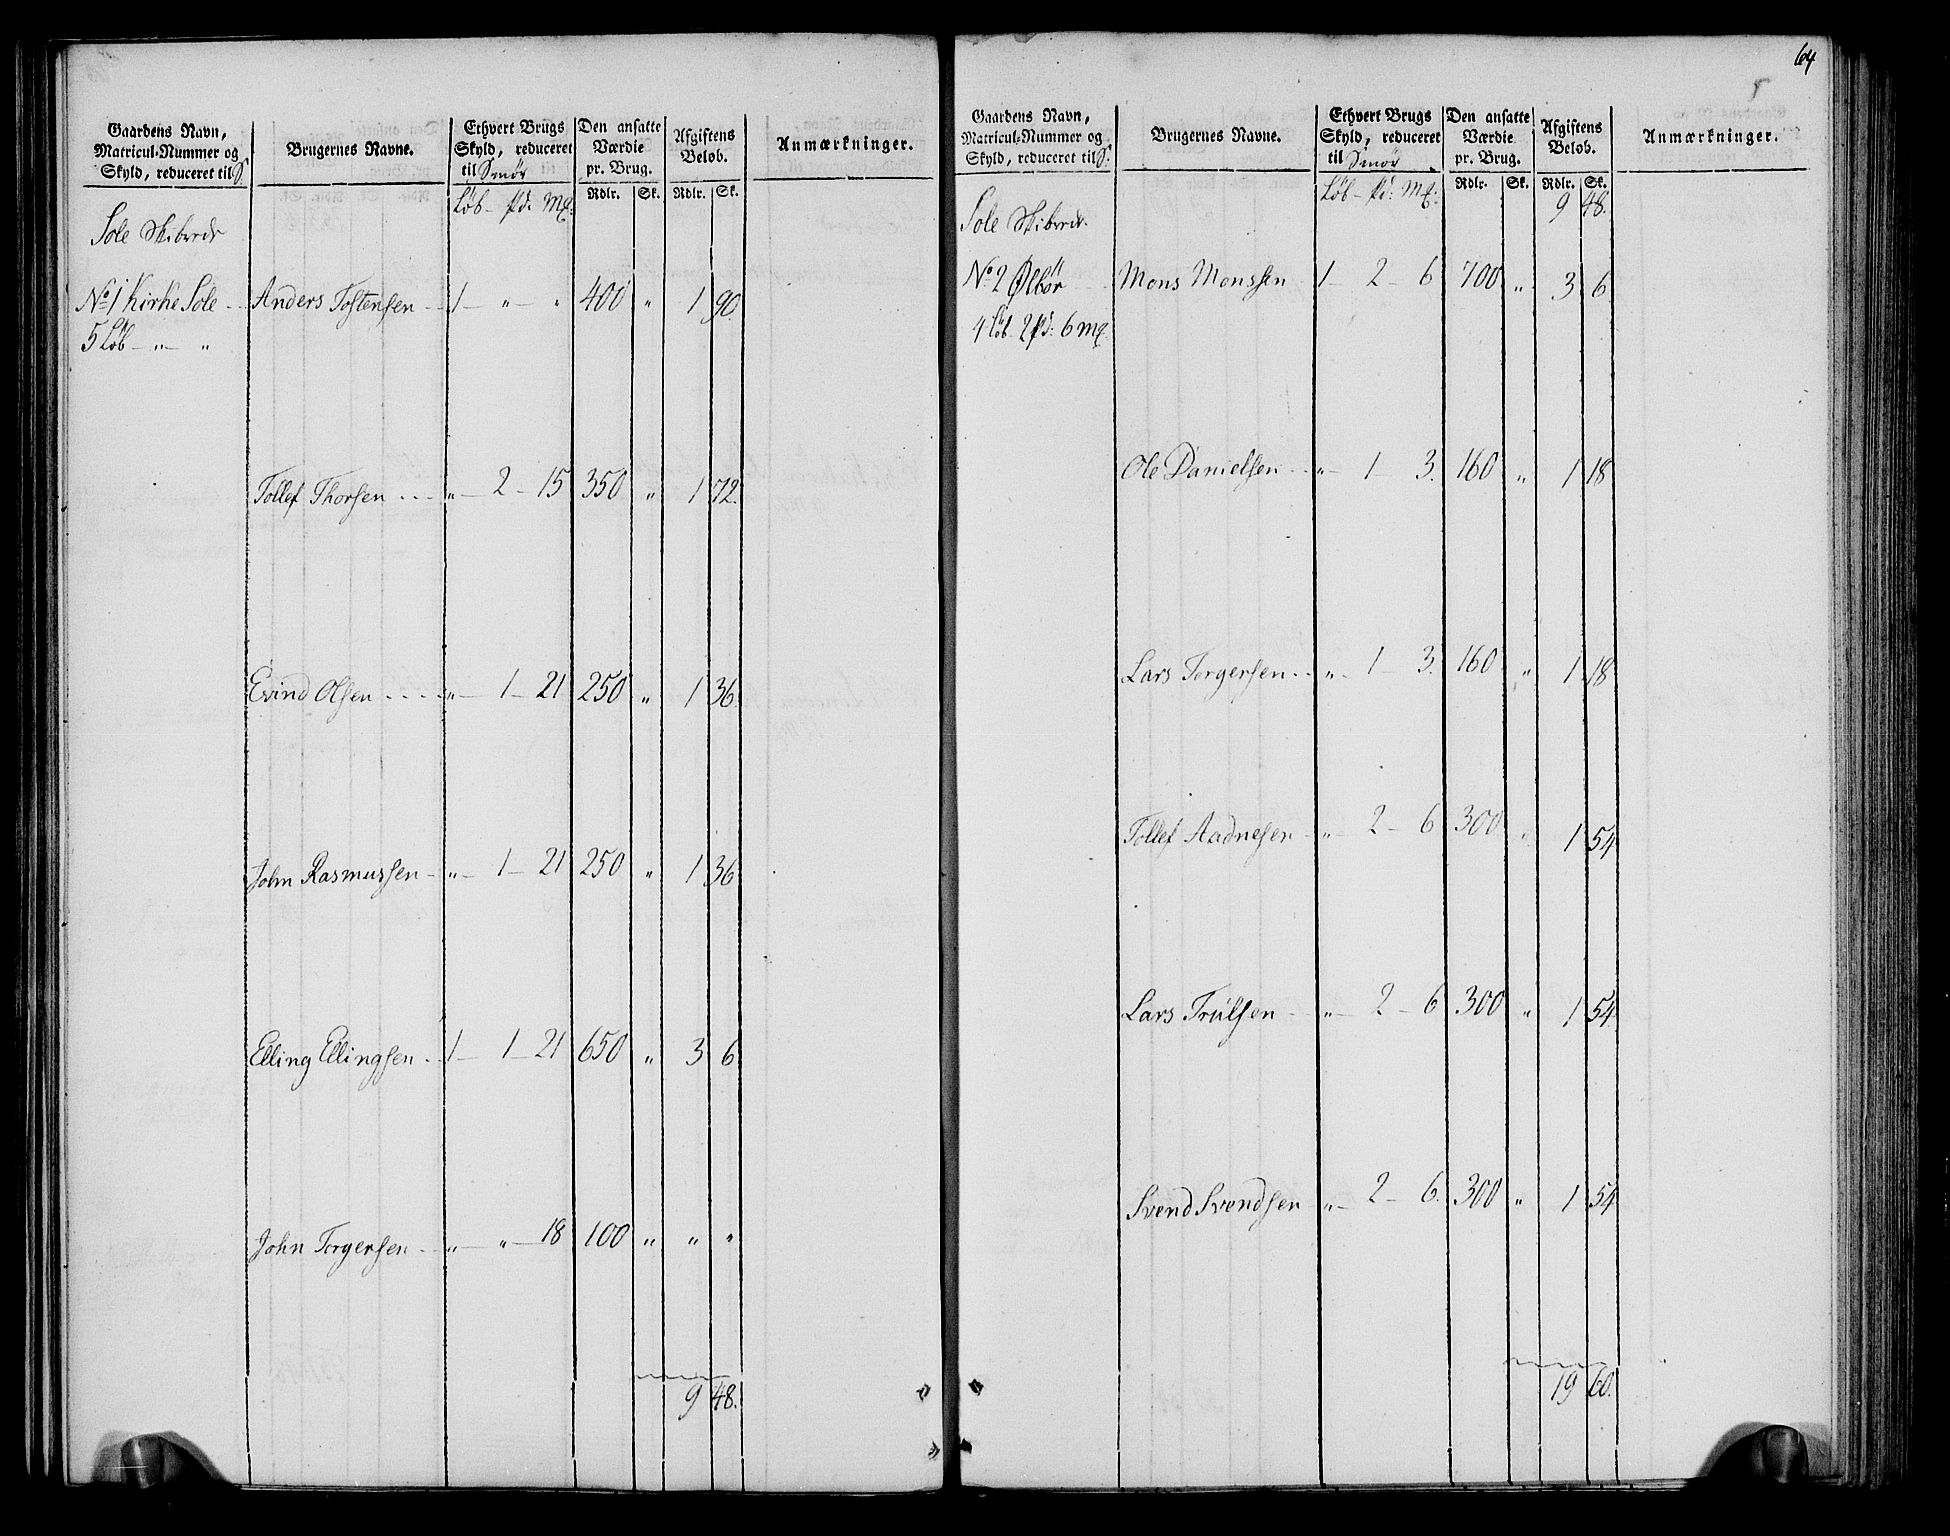 64
5
Gaardens Navn, Matricul-Nummer og Skyld, reduceret til S.
Brugernes Navne.
Ethvert Brugs Skyld, reduceret til Smör
Den ansatte Værdie pr. Brug.
Afgiftens Beløb.
Anmærkninger.
Løb - pd: Mk:
Rdlr. Sk. Rdlr. Sk.
Sole Skibrede
No 1 Kirke Sole - Anders Tostensen - 1 - " - " 400 " 1 90.
5 Løb - " - "
Tollef Thorsen - - - " - 2 - 15 350 " 1 72.
Evind Olsen - - - - " - 1 - 21 250 " 1 36
John Rasmussen - " - 1 - 21 250 " 1 36
Elling Ellingsen - 1 - 1 - 21 650 " 3 6
John Torgersen - " - " - 18 100 " " "
9 48.
Gaardens Navn, Matricul-Nummer og Skyld, reduceret til S.
Brugernes Navne.
Ethvert Brugs Skyld, reduceret til Smör
Den ansatte Værdie pr. Brug.
Afgiftens Beløb.
Anmærkninger.
Løb - pd: Mk:
Rdlr. Sk. Rdlr. Sk.
9 48.
Sole Skibrede.
No 2 Ølbör Mons Monssen 1 - 2 - 6 700 " 3 6
4 Løb. 2 pd: 6 mk.
Ole Danielsen - - " - 1 - 3. 160 " 1 18
Lars Torgersen - - " - 1 - 3. 160 " 1 18
Tollef Aadnesen - " - 2 - 6 300 " 1 54
Lars Trulsen - " - 2 - 6 300 " 1 54
Svend Svendsen - " - 2 - 6. 300 " 1 54
19 60.